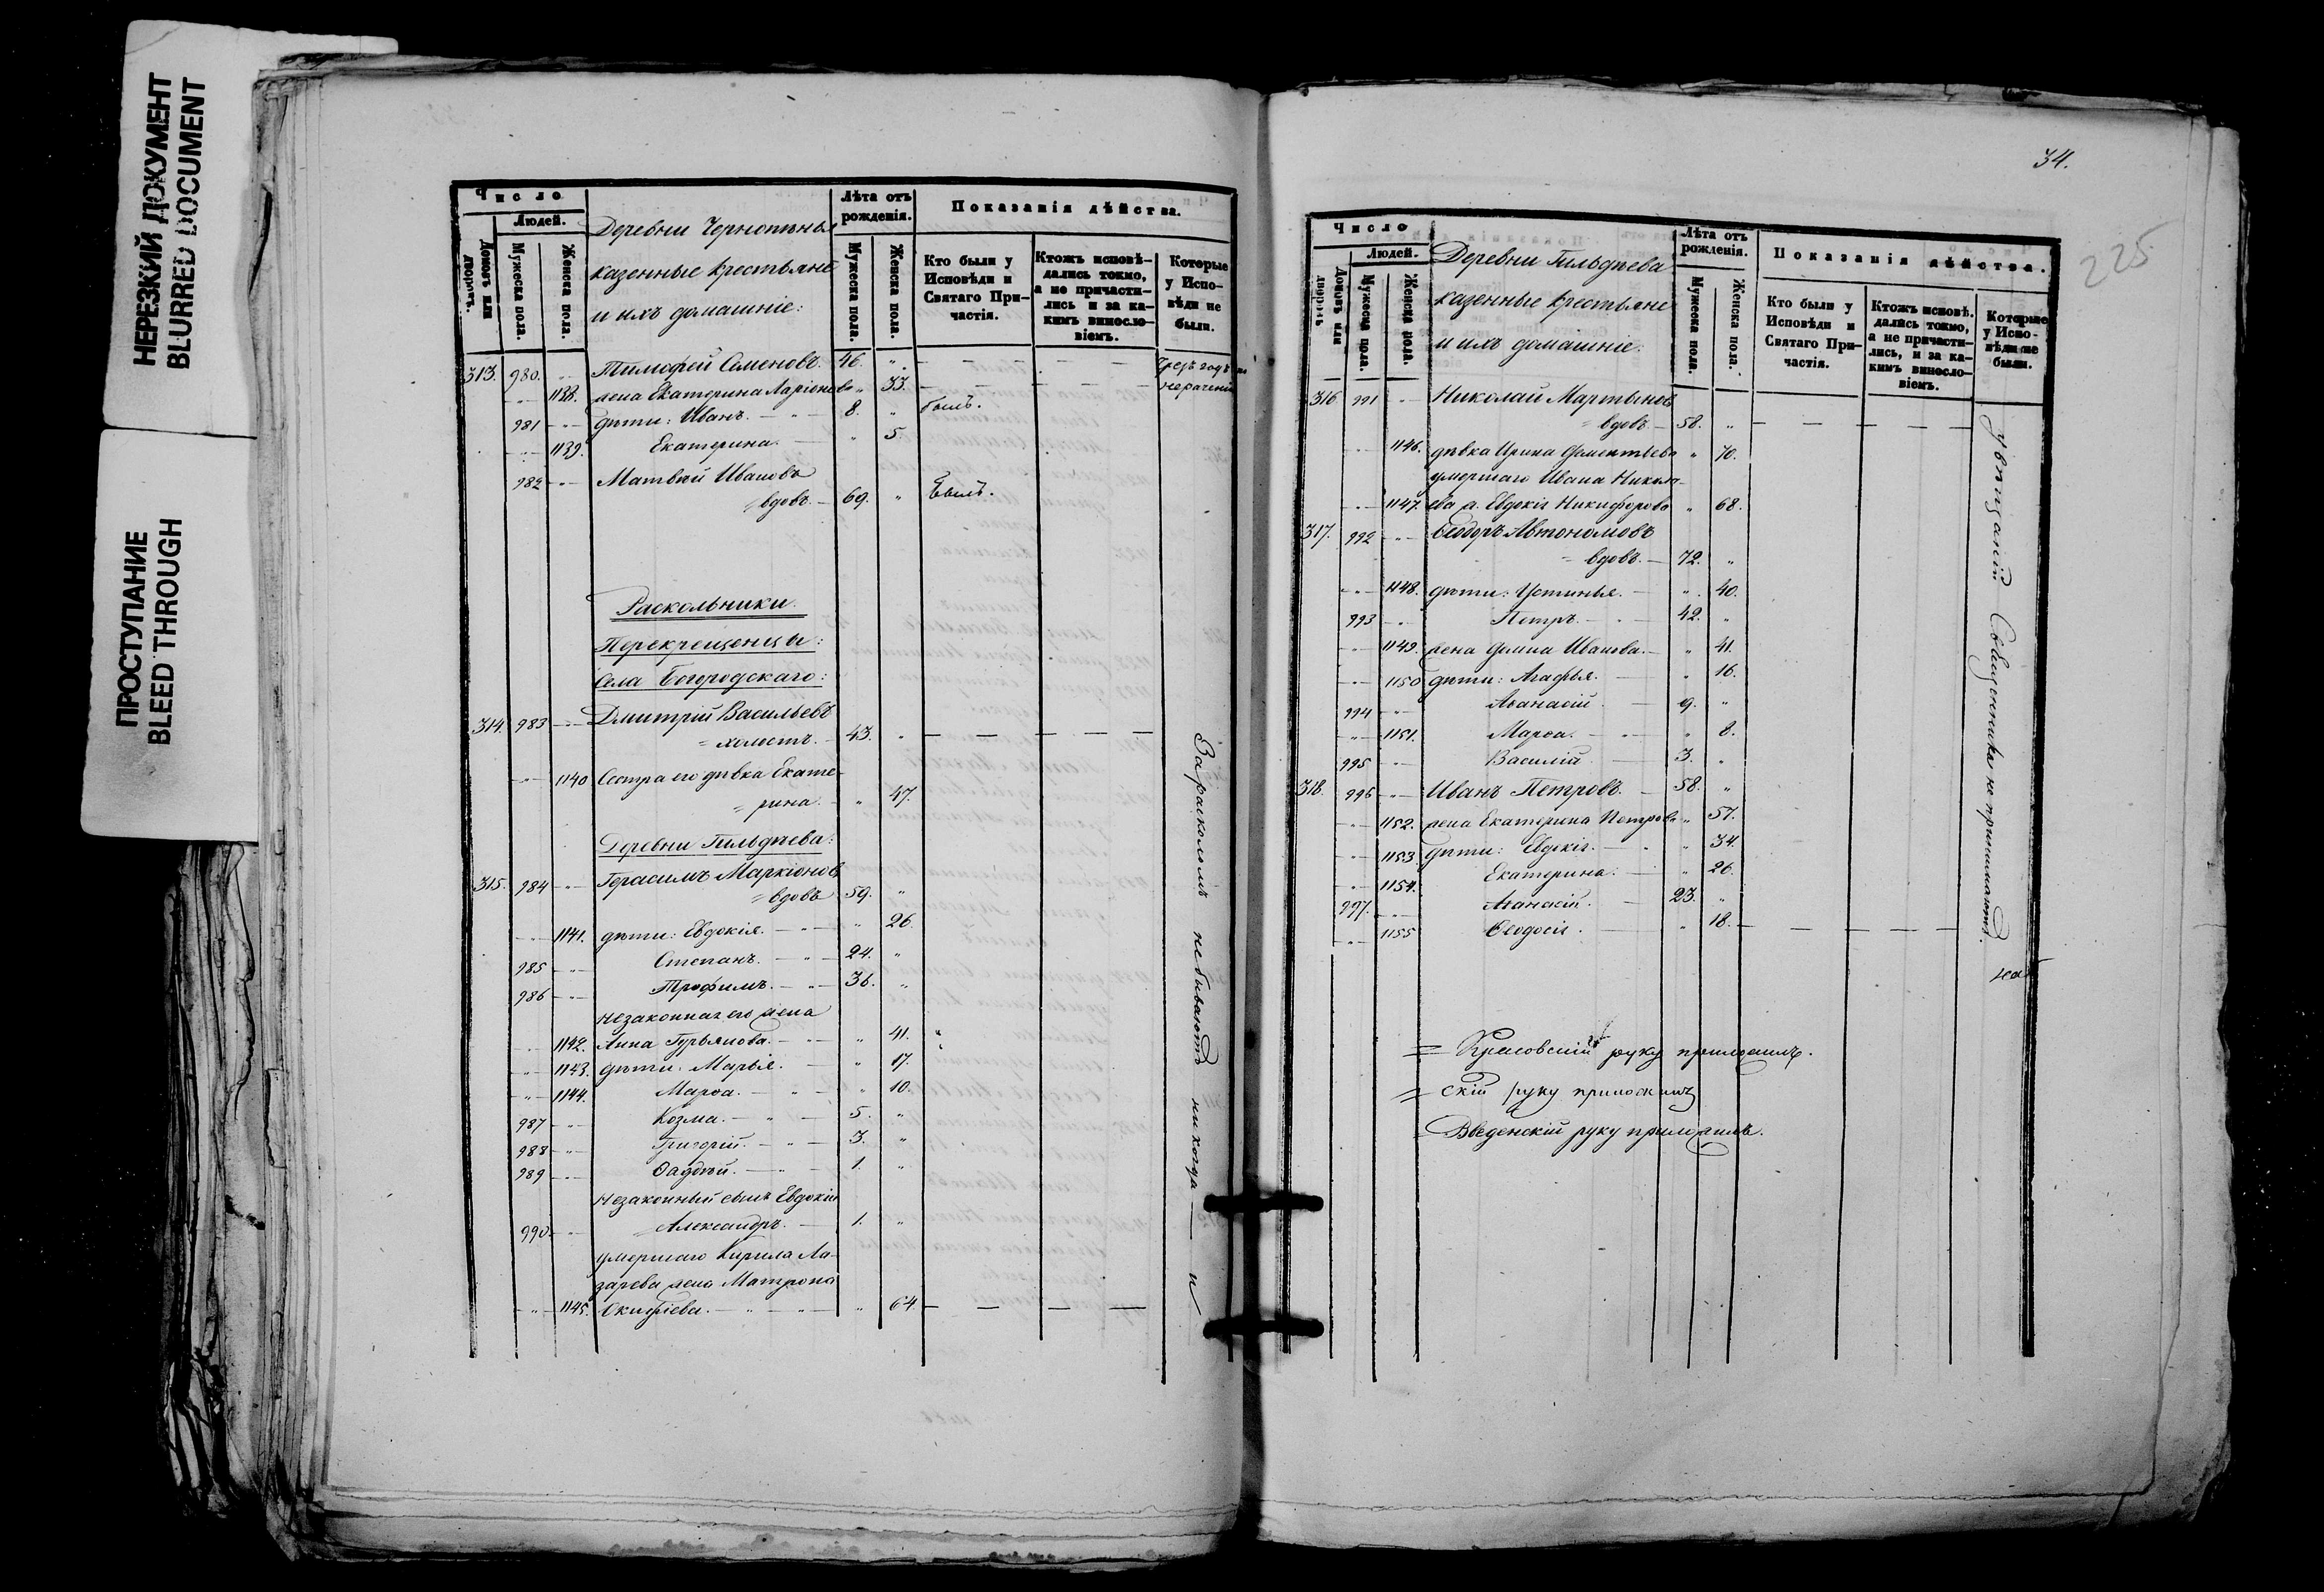 НЕРЕЗКИЙ ДОКУМЕНТ
BLURRED DOCUMENT
ПРОСТУПАНИЕ
BLEED THROUGH
Число
Людей.
Домовъ или дворовъ.
Мужеска пола.
Женска пола.
Деревни
казенные крестьяне
и ихъ домашніе:
Лѣта отъ рожденія.
Мужеска пола.
Женска пола.
Показанія дѣйства.
Кто были у Исповѣди и Святаго Причастія.
Ктожъ исповѣдались токмо, а не причастились и за какимъ винословіемъ.
Которые у Исповѣди не были.
313. 980. Тимофей Семеновъ. 46. "
1138. жена Екатерина Ларіонова " 33.
981 дѣти: Иванъ. 8. " былъ.
1139. Екатерина. " 5.
982 Матвѣй Ивановъ
вдовъ. 69. " былъ.
Раскольники.
Перекрещенцы:
Села Богородскаго:
314. 983 Дмитрій Васильевъ
= холостъ. 43. "
1140 Сестра его дѣвка Екате-
= рина. " 47.
Деревни Гильдѣева:
315. 984 Герасимъ Маркіоновъ
= вдовъ 59. "
1141. дѣти: Евдокія. " 26.
985 Степанъ. 24. "
986 Трофимъ. 36. "
незаконная его жена
1142. Анна Гурьянова. " 41. "
1143. дѣти: Марья. " 17.
1144. Марѳа. " 10.
987 Козма. 5. "
988 Григорій. 3. "
989 Ѳадѣй. 1. "
Незаконный сынъ Евдокіи
990 Александръ. 1. "
умершаго Кирила Ла-
зарева жена Матрона
1145. " 64.
За расколомъ не бываютъ никогда — и
34.
225
Число
Людей.
Домовъ или дворовъ
Мужеска пола.
Женска пола.
Деревни Гильдѣева
казенные крестьяне
и ихъ домашніе.
Лѣта отъ рожденія.
Мужеска пола.
Женска пола.
Показанія дѣйства.
Кто были у Исповѣди и Святаго Причастія.
Ктожъ исповѣдались токмо, а не причастились, и за какимъ винословіемъ.
Которые у Исповѣди не были.
316. 991 Николай Мартыновъ
= вдовъ 58. "
1146. дѣвка Ирина " 70.
умершаго Ивана Никола-
1147. ева ж. Евдокія Никифорова " 68.
317. 992 Ѳеодоръ Автономовъ
= вдовъ. 72. "
1148. дѣти: Устинья. " 40.
993 Петръ. 42. "
1149. жена Ивановна. " 41.
1150 дѣти: Агафья. " 16.
994 Аѳанасій. 9. "
1151. Марѳа. " 8.
995 Василій. 3. "
318. 996 Иванъ Петровъ. 58. "
1152. жена Екатерина Петрова " 57.
1153 дѣти: Евдокія. " 34.
1154. Екатерина. " 26.
997. Аѳанасій. 23. "
1155 Ѳеодосія. " 18.
увѣщаній Священника не принимаютъ.
= руку приложилъ.
= скій руку приложилъ
= Введенскій руку приложилъ.